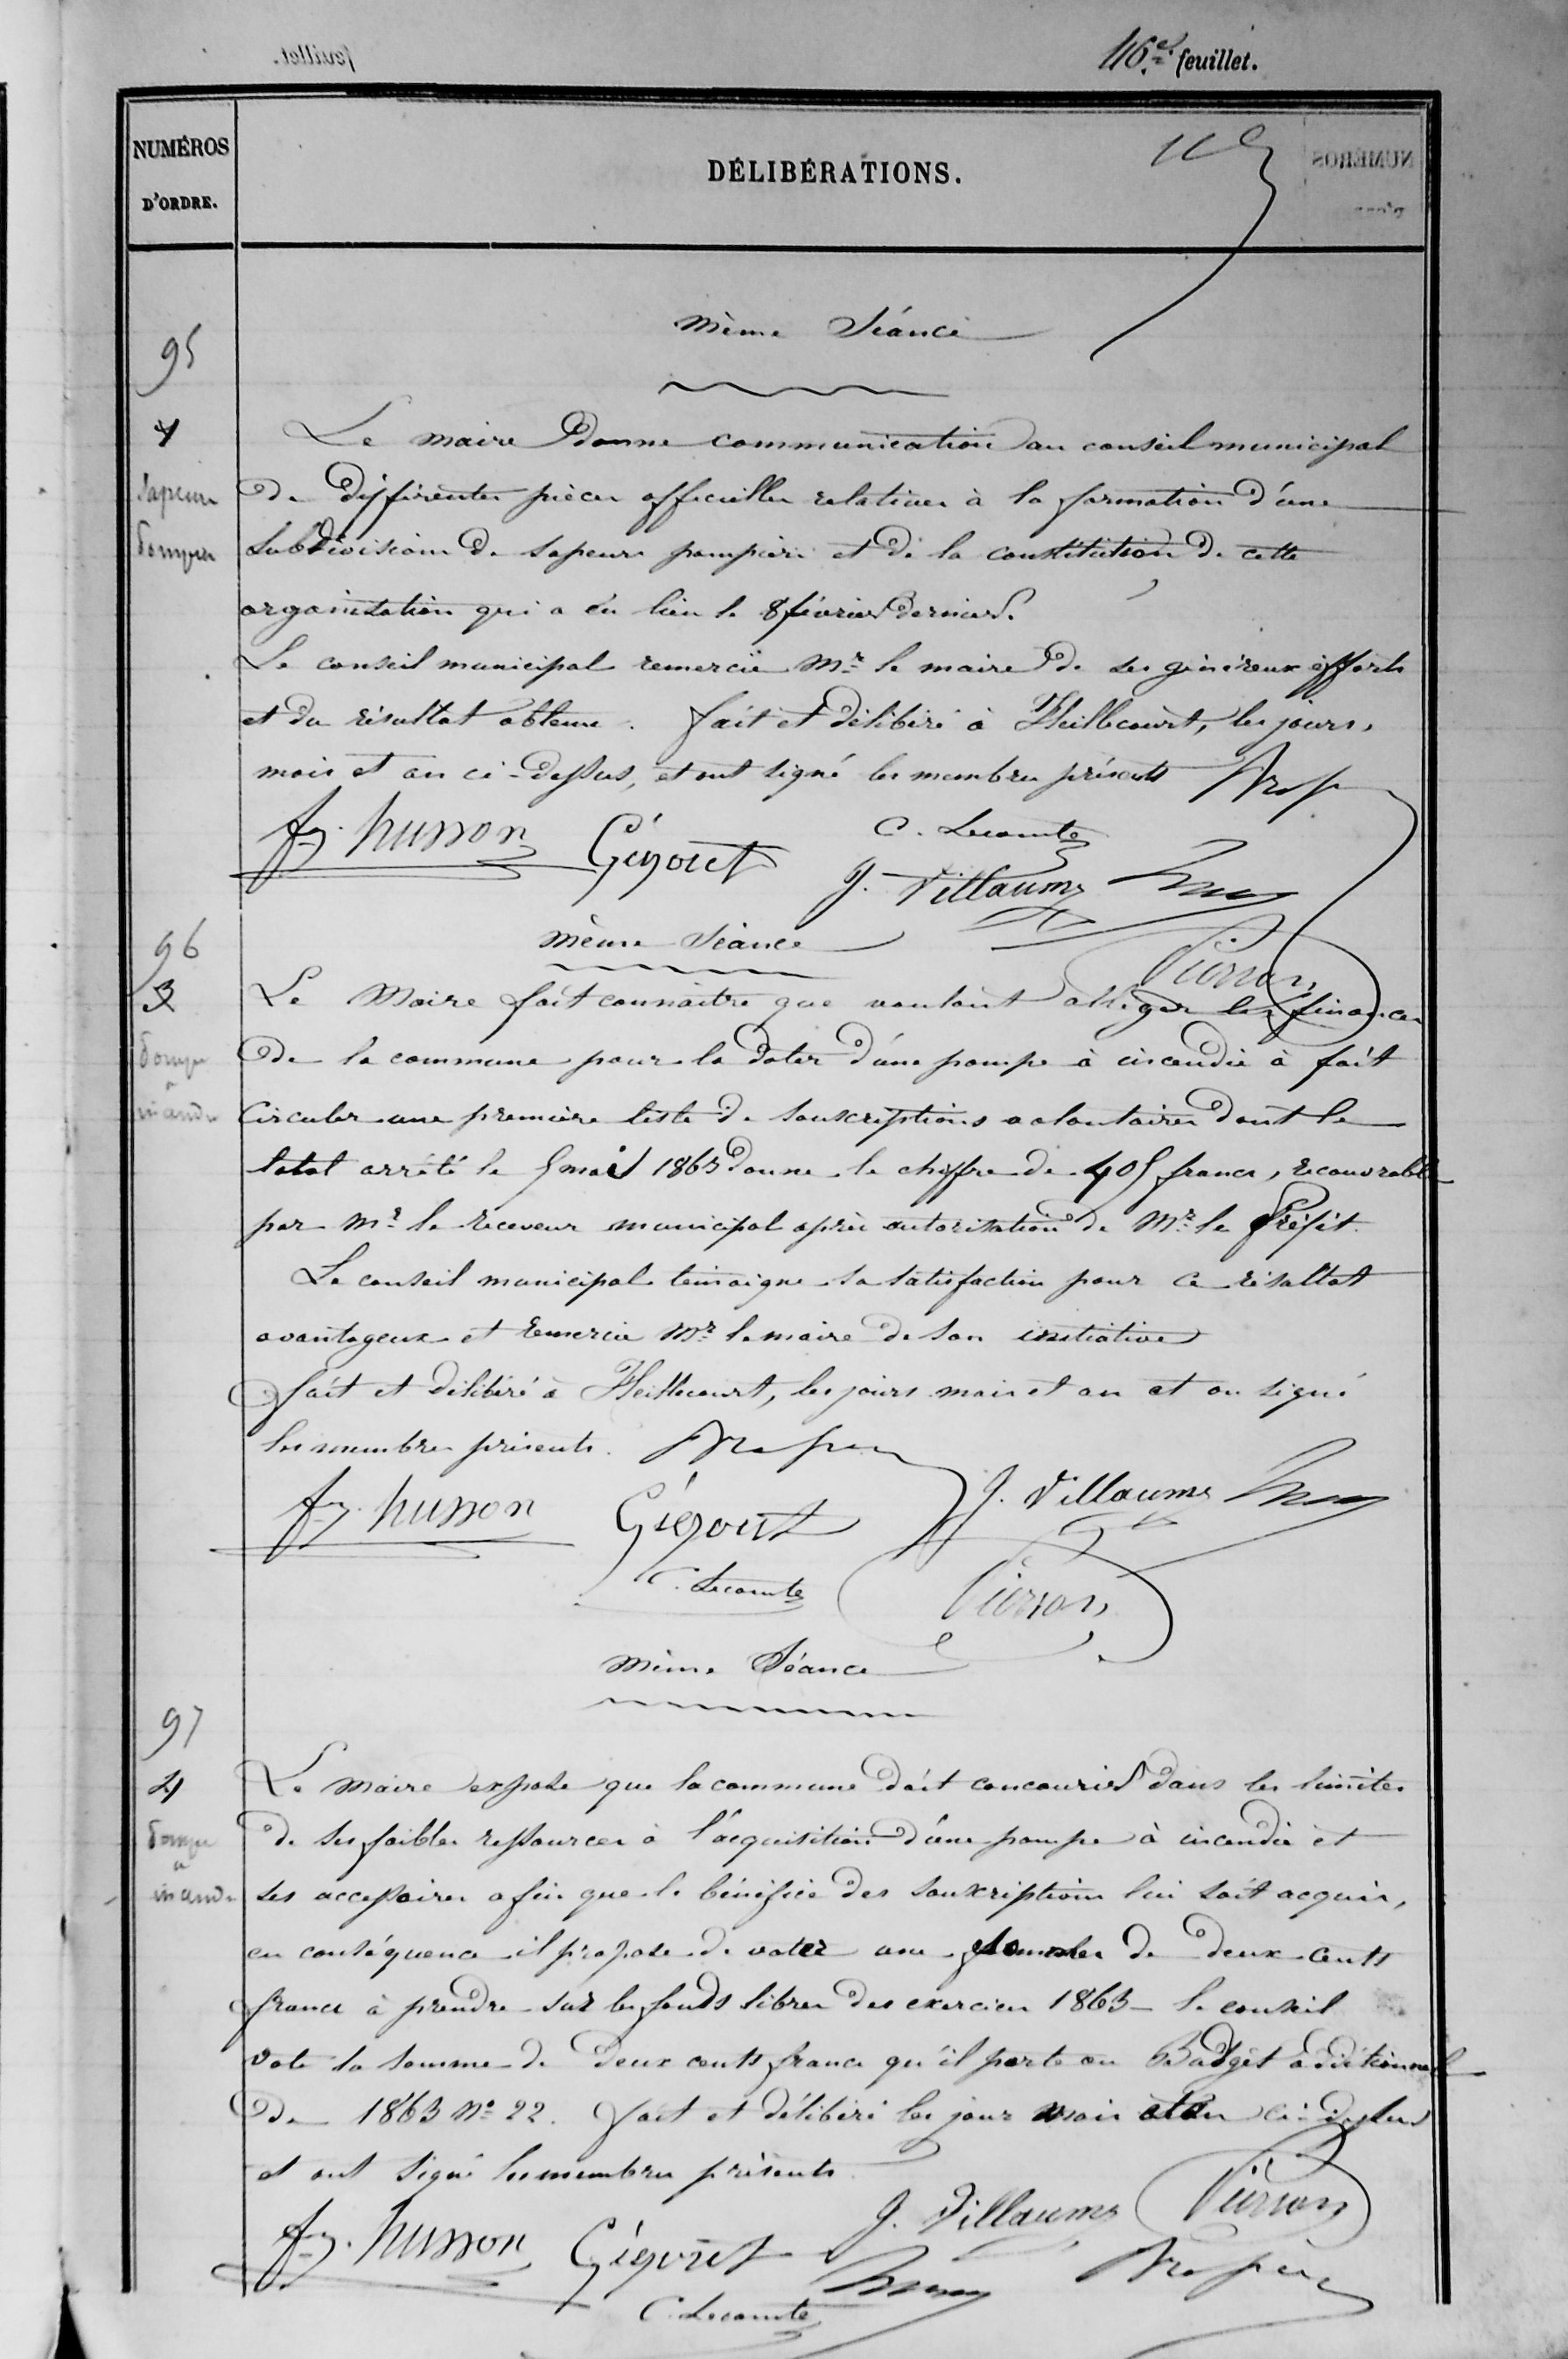 116e feuillet.
NUMÉROS
D'ORDRE.
DÉLIBÉRATIONS.
même Séance
95
Sapeurs
Pompiers
Le maire donne communication au conseil municipal
de différentes pièces officielles relatives à la formation d'une
Subdivision de sapeurs pompiers et de la constitution de cette
organisation qui a eu lieu le 8 février dernier.
Le conseil municipal remercie Mr le maire de ses généreux efforts
et du résultat obtenu. fait et délibéré à Heillecourt, les jours,
mois et an ci-dessus, et ont signé les membres présents
fz. husson Gégout C. Lecomte
J. Villaume
Pierron
même Séance
96
3
Pompe
a
incendie
Le Maire fait connaitre que voulant alléger les finances
de la commune pour la doter d'une pompe à incendie à fait
Circuler une première liste de souscriptions volontaires dont le
total arrêté le 5 mai 1863 donne le chiffre de 405 francs, recouvrable
par Mr le receveur municipal après autorisation de Mr le Préfet.
Le conseil municipal témoigne sa satisfaction pour ce résultat
avantageux et remercie Mr le maire de son initiative
fait et délibéré à Heillecourt, les jours mois et an et on signé
les membres présents.
fz. husson Gégout J. Villaume
C. Lecomte Pierron
même Séance
97
4
Pompe
a
incendie
Le Maire expose que la commune doit concourir dans les limites
de ses faibles ressources à l'acquisition d'une pompe à incendie et
ses accessoires afin que le bénéfice des souscriptions lui soit acquis,
en conséquence il propose de voter une somme de deux cents
francs à prendre sur les fonds libres des exercices 1863 - le conseil
vote la somme de deux cents francs qu'il porte au Budget additionnel
de 1863 No 22. fait et délibéré les jour mois et an ci-dessus
et ont signé les membres présents
fz. husson Gégout J. Villaume Pierron
C. Lecomte